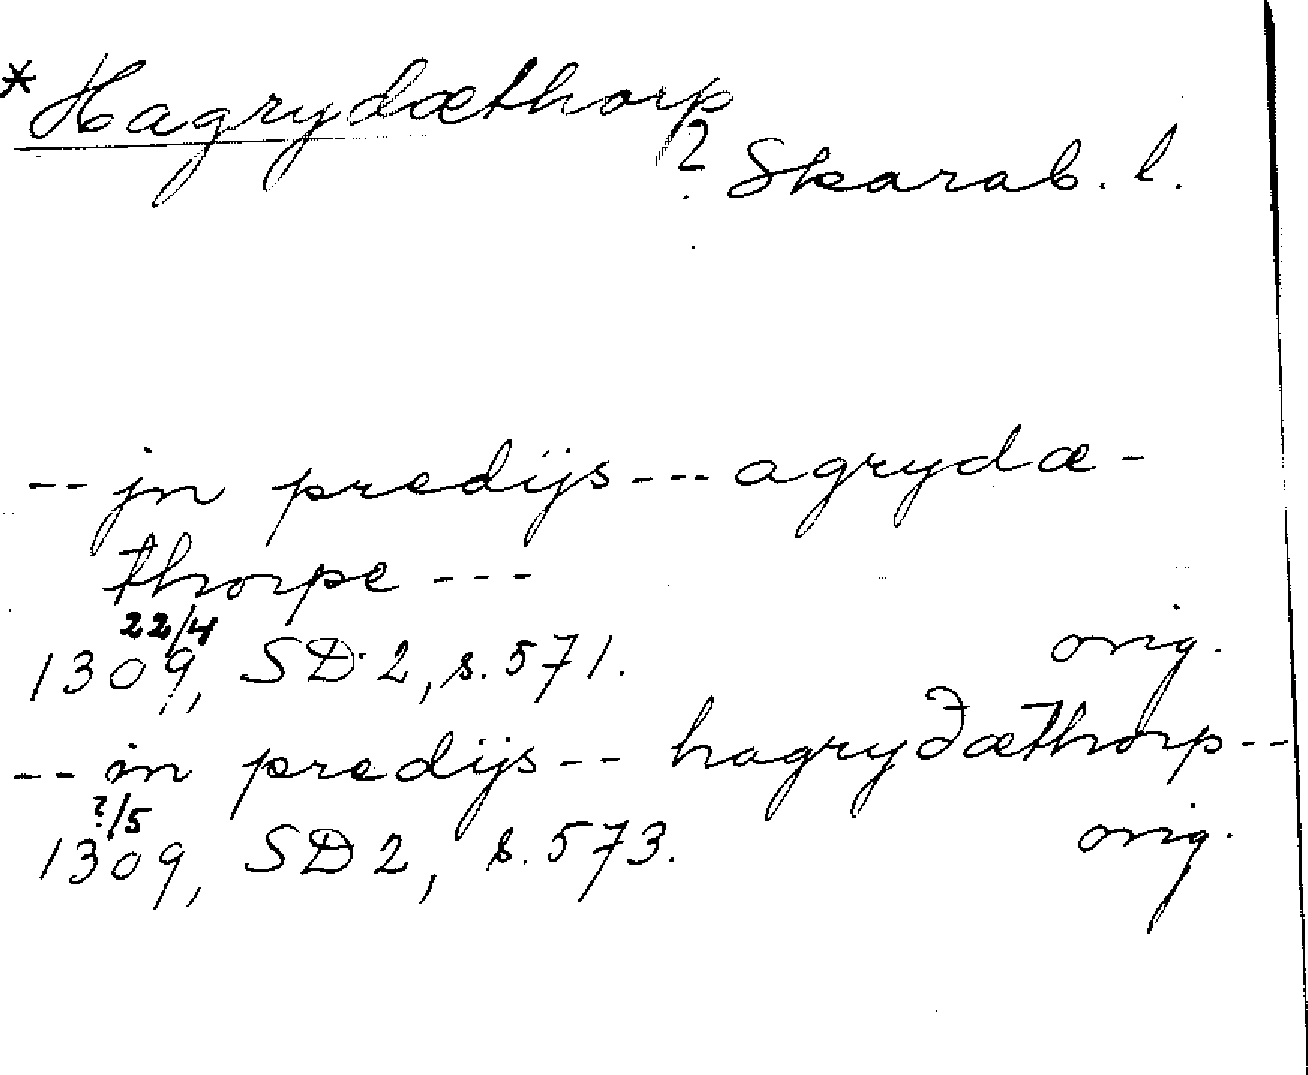 *Hagrydæthorp
? Skarab. l.
-- jn predijs --- agrydæ-
thorpe ---
22/4
1309, SD 2, s. 571. orig.
-- in predijs -- hagryðæthorp --
?/5
1309, SD 2, s. 573. orig.